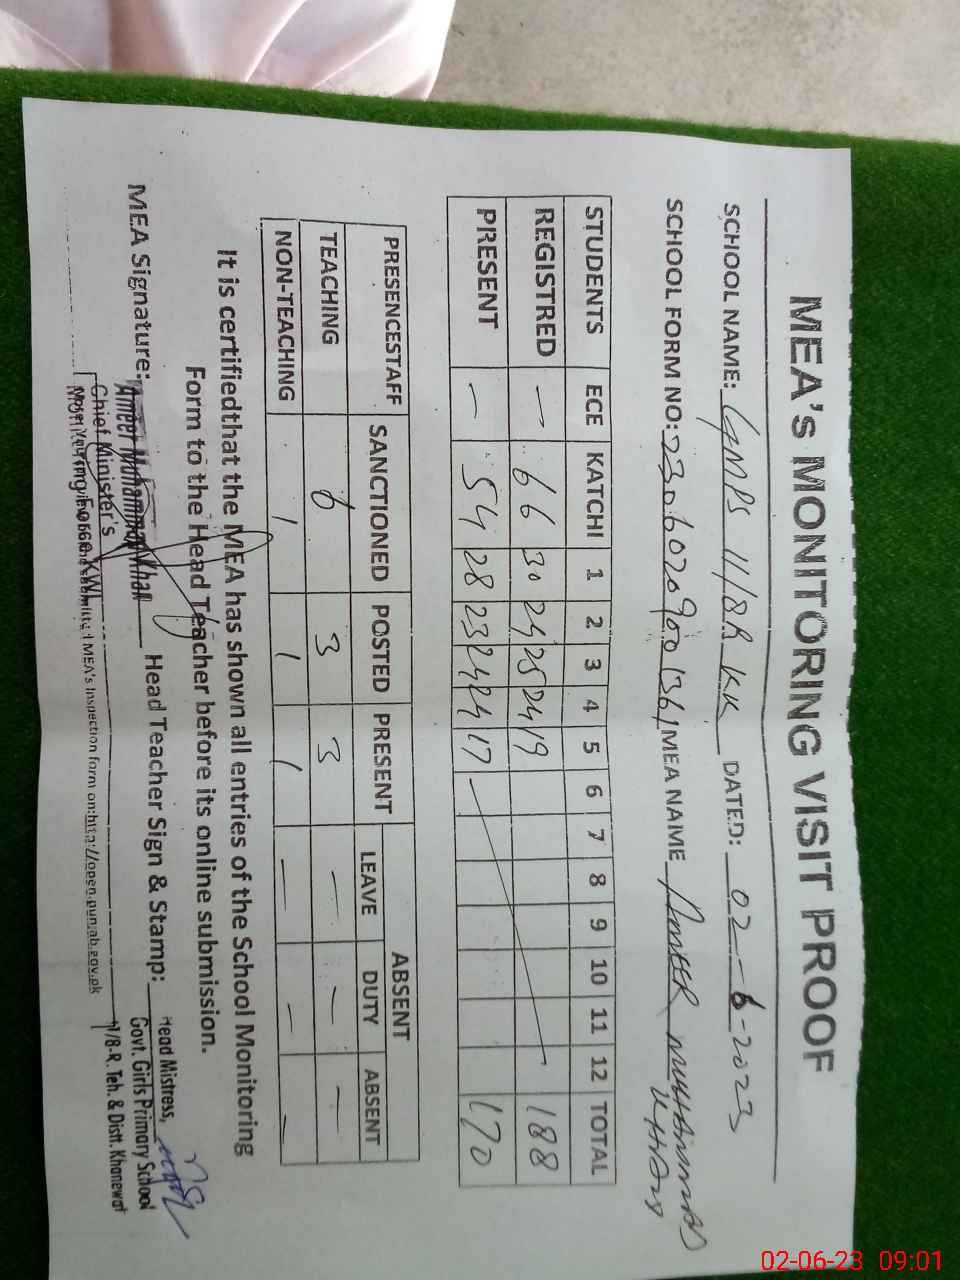 MEA's MONITORING VISIT PROOF
SCHOOL NAME: GMPS 11/8R KK DATED: 02-6-2023
SCHOOL FORM NO: 23060209001361 MEA NAME AMEER MUHAMMAD KHAN
STUDENTS ECE KATCHI 1 2 3 4 5 6 7 8 9 10 11 12 TOTAL
REGISTRED — 66 30 24 25 24 19 188
PRESENT — 54 28 23 24 24 17 170
PRESENCESTAFF SANCTIONED POSTED PRESENT ABSENT
LEAVE DUTY ABSENT
TEACHING 6 3 3 — — —
NON-TEACHING 1 1 1 — — —
It is certifiedthat the MEA has shown all entries of the School Monitoring
Form to the Head Teacher before its online submission.
MEA Signature: Ameer Muhammad Khan Head Teacher Sign & Stamp: Head Mistress,
Govt. Girls Primary School
11/8-R. Teh. & Distt. Khanewal
Chief Minister's
Monitoring Force KWL
submitted MEA's Inspection form on:http://open.punjab.gov.pk
02-06-23 09:01